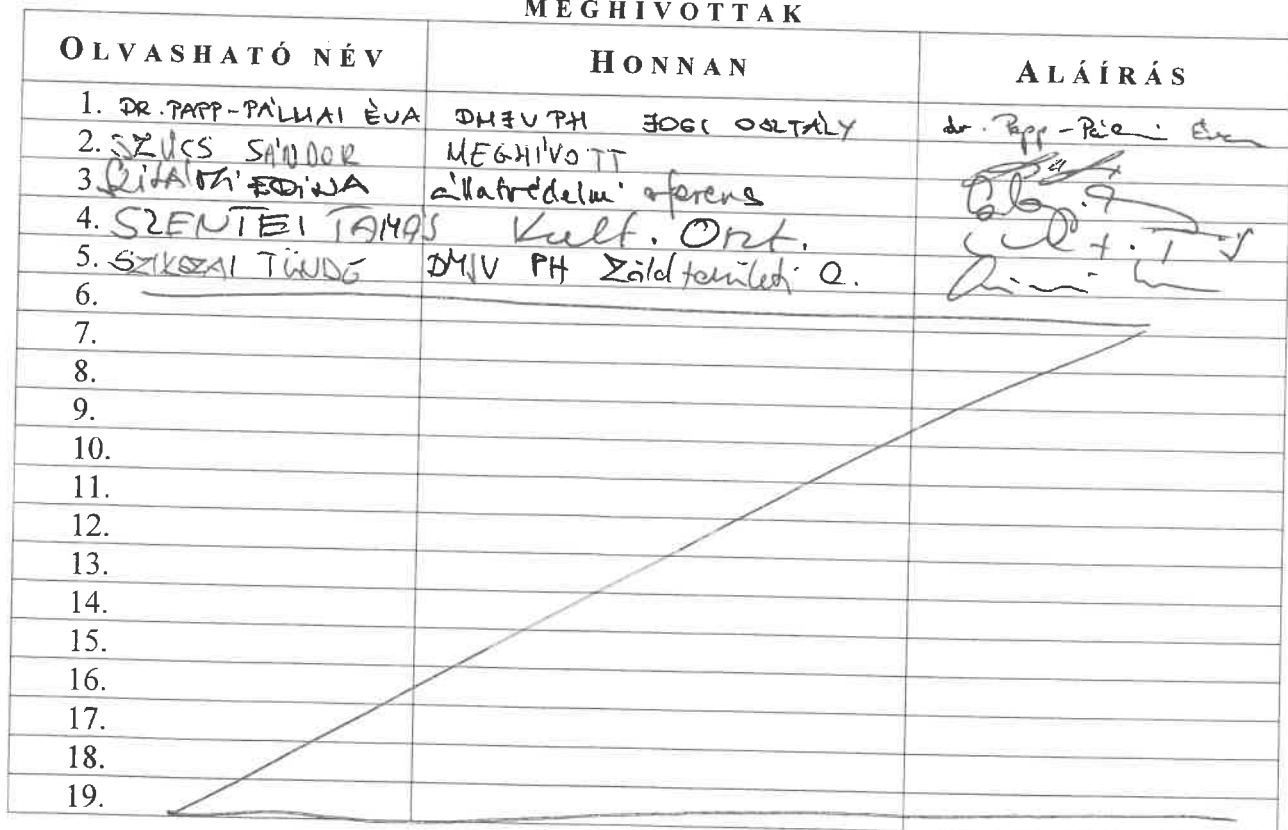 MEGHÍVOTTAK
OLVASHATÓ NÉV HONNAN ALÁÍRÁS
1. DR. PAPP-PÁLMAI ÉVA DMJV PH JOGI OSZTÁLY dr. Papp-Pálmai Éva
2. SZŰCS SÁNDOR MEGHÍVOTT
3. EDINA állatvédelmi referens
4. SZENTEI TAMÁS Kult. Oszt.
5. SZIKSZAI TÜNDE DMJV PH Zöldterületi O.
6.
7.
8.
9.
10.
11.
12.
13.
14.
15.
16.
17.
18.
19.